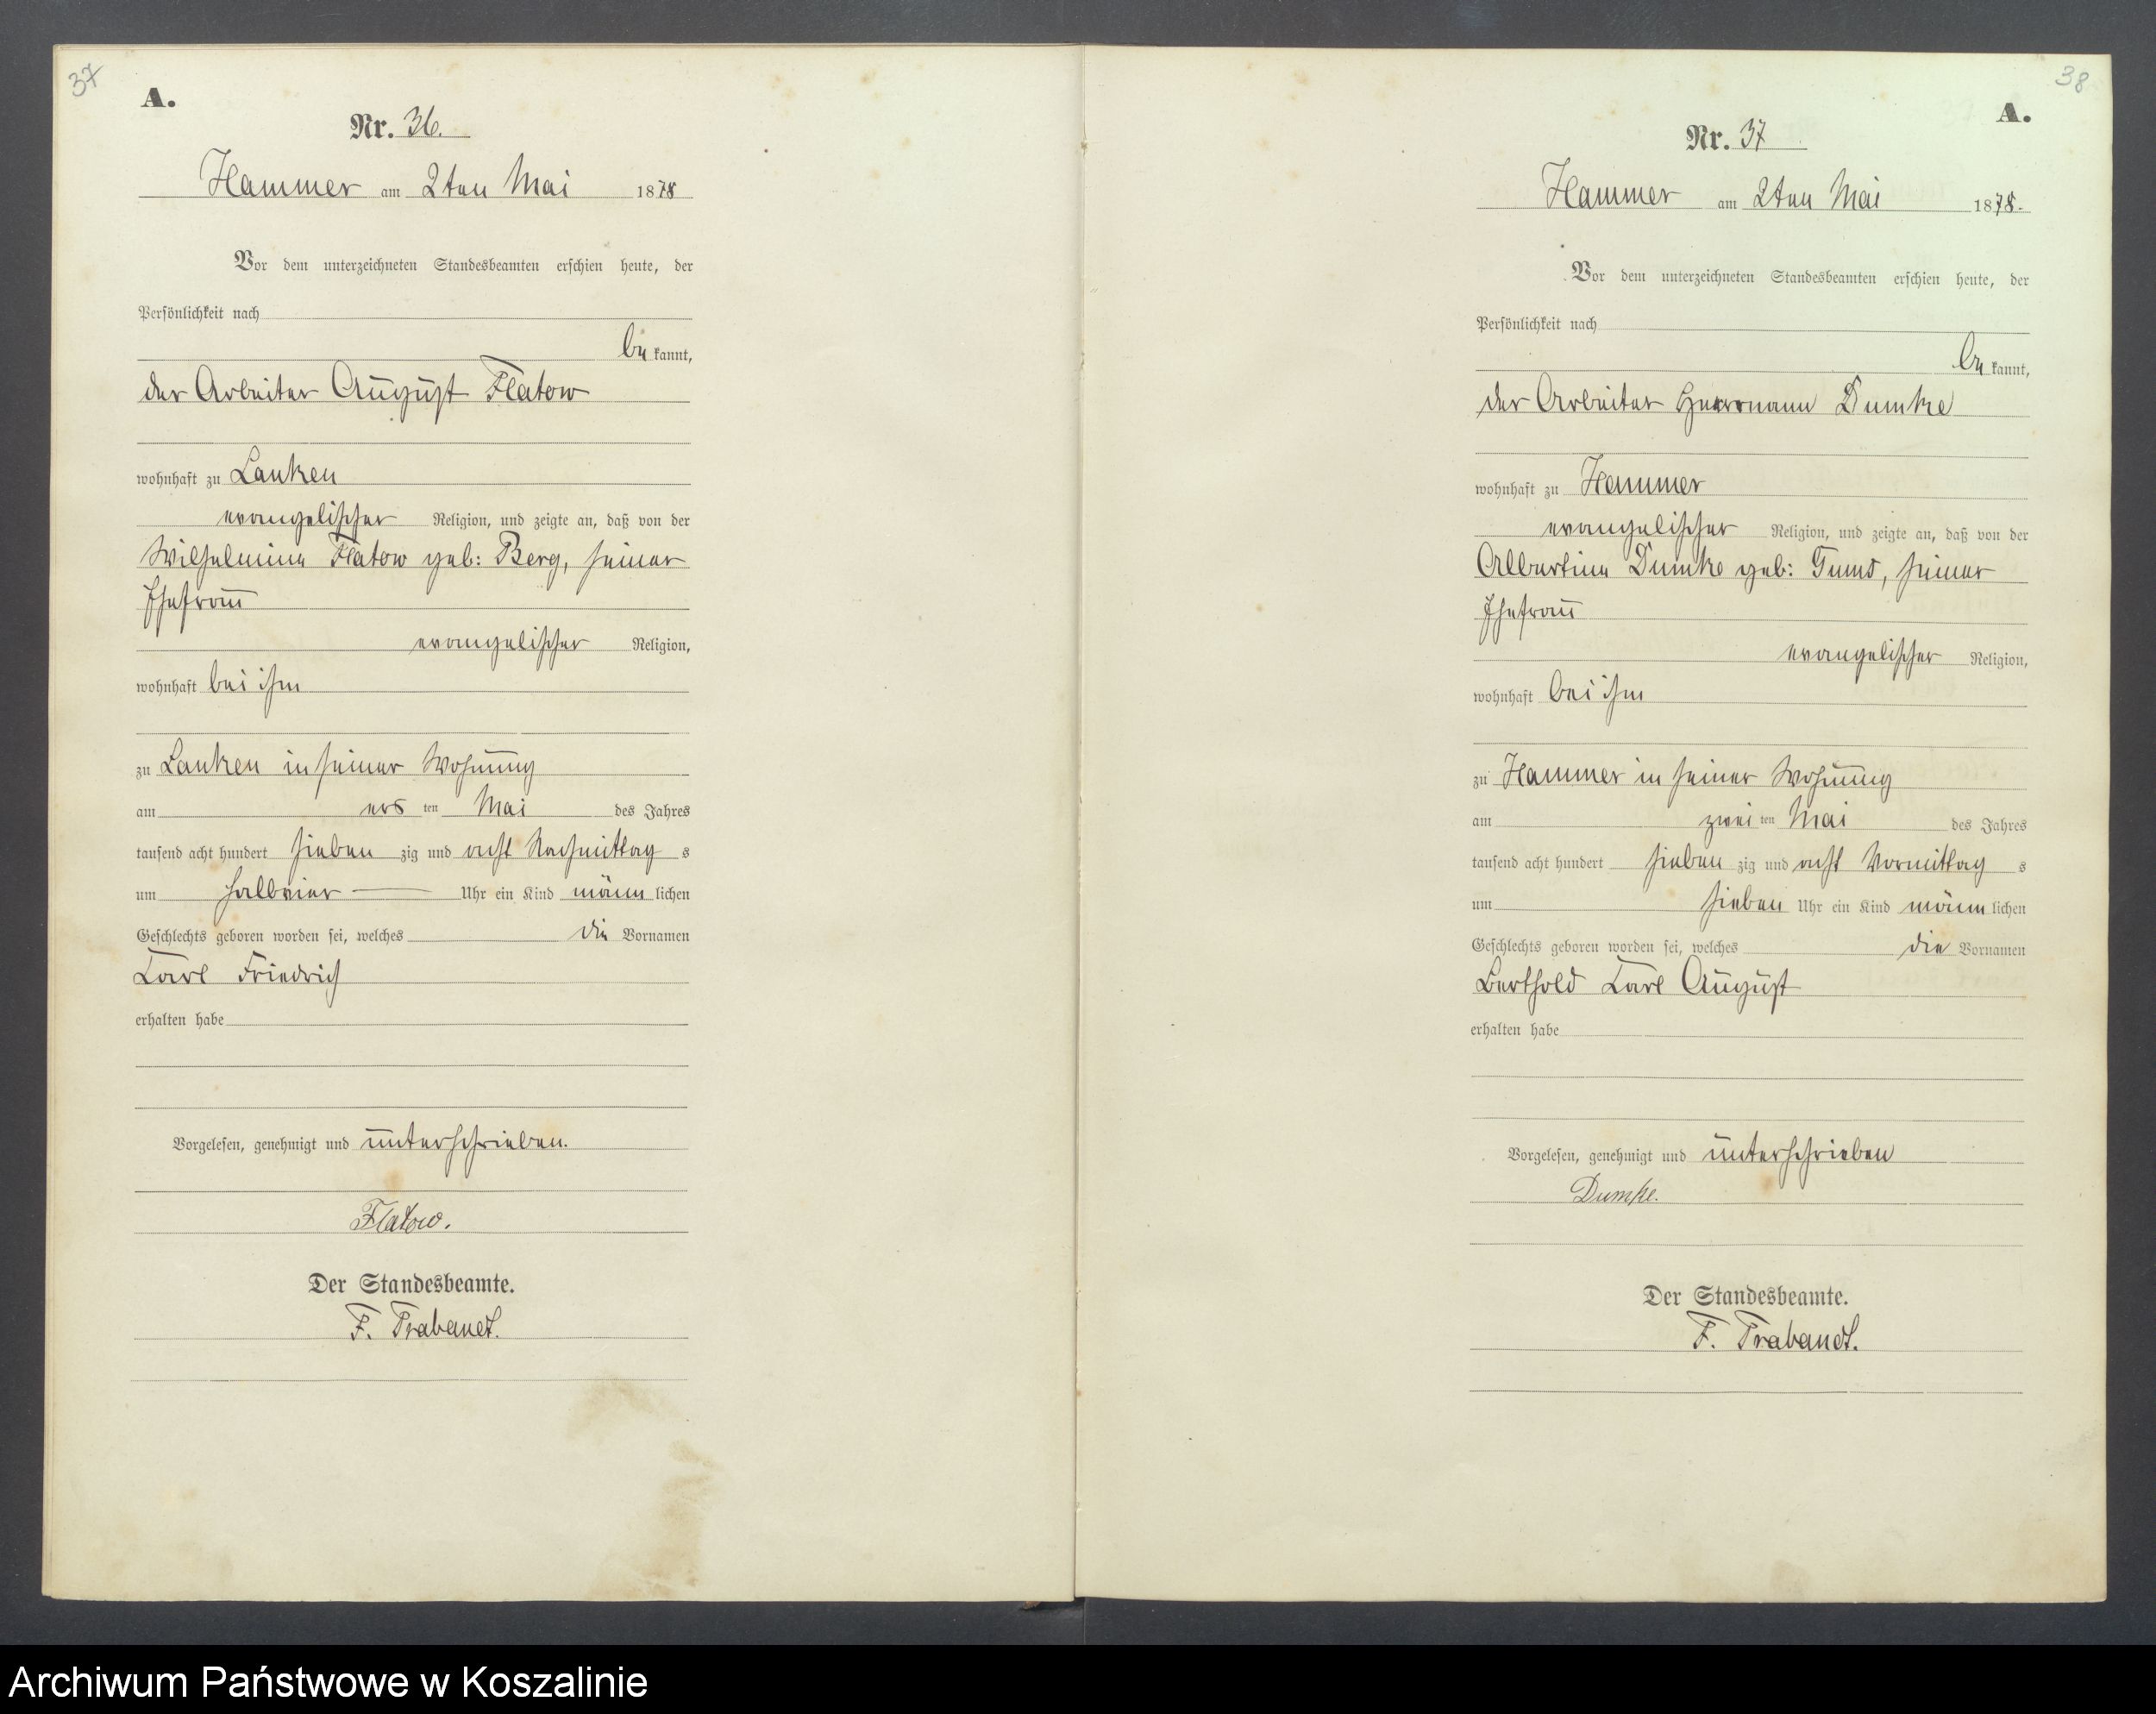 37
A.
Nr. 36.
Hammer am 2ten Mai 1878
Vor dem unterzeichneten Standesbeamten erschien heute, der
Persönlichkeit nach
be kannt,
der Arbeiter August Flatow
wohnhaft zu Lanken
evangelischer Religion, und zeigte an, daß von der
Wilhelmine Flatow geb: Berg, seiner
Ehefrau
evangelischer Religion,
wohnhaft bei ihm
zu Lanken in seiner Wohnung
am ers ten Mai des Jahres
tausend acht hundert sieben zig und acht Nachmittag s
um halbvier Uhr ein Kind männ lichen
Geschlechts geboren worden sei, welches die Vornamen
Carl Friedrich
erhalten habe
Vorgelesen, genehmigt und unterschrieben.
Flatow.
Der Standesbeamte.
F. Trabandt.
38
A.
Nr. 37
Hammer am 2ten Mai 1878.
Vor dem unterzeichneten Standesbeamten erschien heute, der
Persönlichkeit nach
be kannt,
der Arbeiter Herrmann Dumke
wohnhaft zu Hammer
evangelischer Religion, und zeigte an, daß von der
Albertine Dumke geb: seiner
Ehefrau
evangelischer Religion,
wohnhaft bei ihm
zu Hammer in seiner Wohnung
am zwei ten Mai des Jahres
tausend acht hundert sieben zig und acht Vormittag s
um sieben Uhr ein Kind männ lichen
Geschlechts geboren worden sei, welches die Vornamen
Berthold Carl August
erhalten habe
Vorgelesen, genehmigt und unterschrieben
Dumke.
Der Standesbeamte.
F. Trabandt.
Archiwum Państwowe w Koszalinie